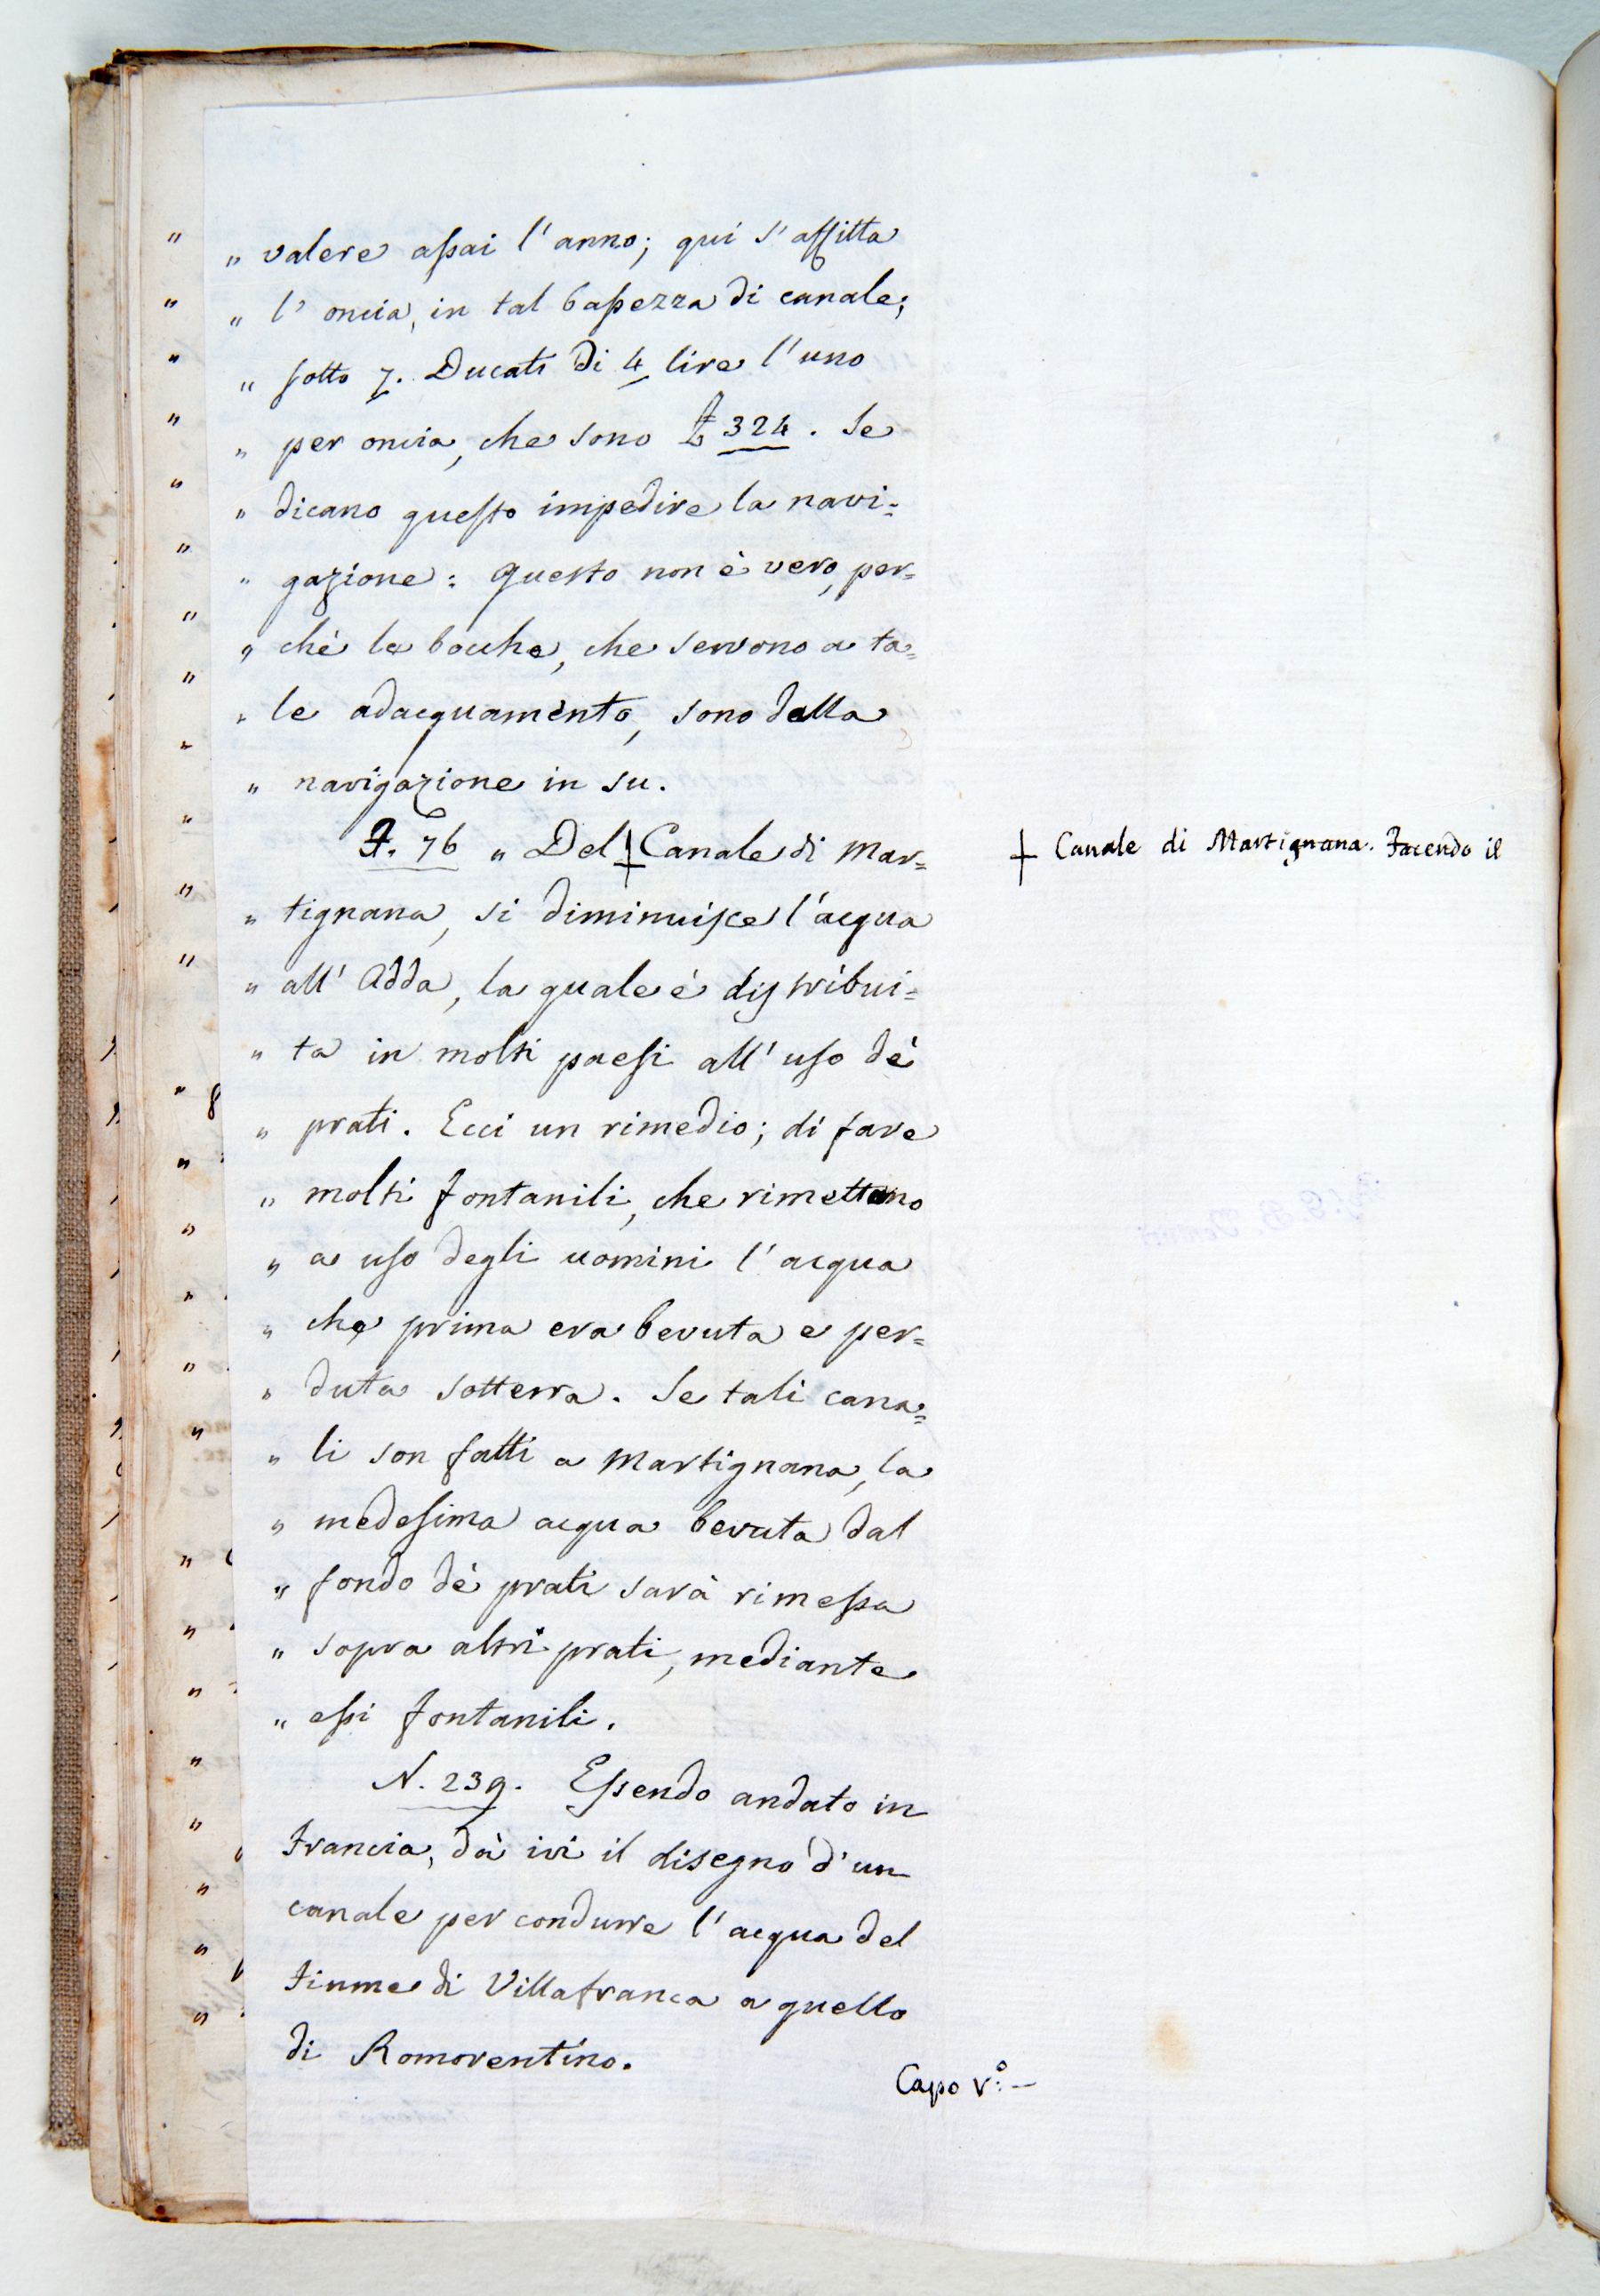 „ valere assai l'anno; qui s'affitta
„ l'oncia, in tal bassezza di canale;
„ sotto 7. Ducati di 4 lire l'uno
„ per oncia, che sono £ 324. Se
„ dicano questo impedire la navi=
„ gazione: questo non è vero, per=
„ chè le bocche, che servono a ta=
„ le adacquamento, sono dalla
„ navigazione in su.
F. 76 „ Del † Canale di Mar=
„ tignana, si diminuisce l'acqua
„ all' Adda, la quale è distribui=
„ ta in molti paesi all'uso de'
„ prati. Ecci un rimedio; di fare
„ molti fontanili, che rimettano
„ a uso degli uomini l'acqua
„ che prima era bevuta e per=
„ duta sotterra. Se tali cana=
„ li son fatti a Martignana, la
„ medesima acqua bevuta dal
„ fondo de' prati sarà rimessa
„ sopra altri prati, mediante
„ essi fontanili.
N. 239. Essendo andato in
Francia, dà ivi il disegno d'un
canale per condurre l'acqua del
Fiume di Villafranca a quello
di Romorentino.
† Canale di Martignana. Facendo il
Capo V.° –